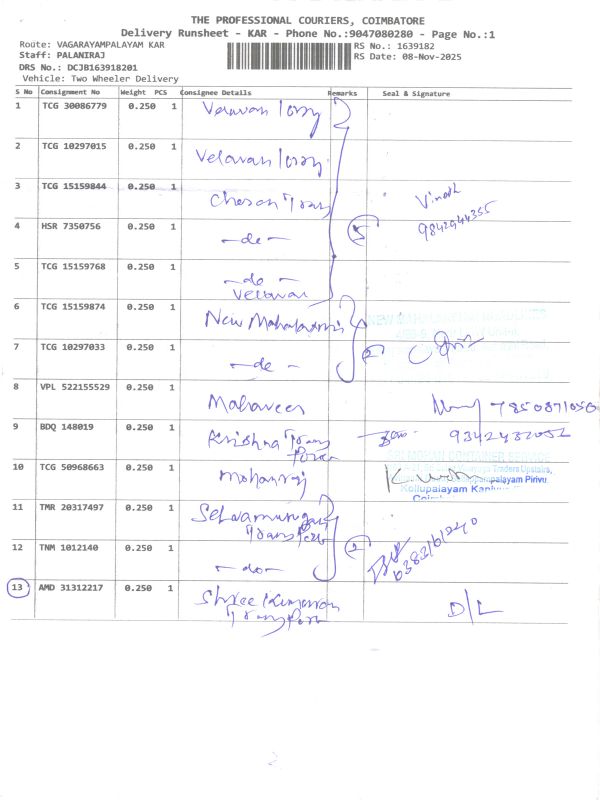 THE PROFESSIONAL COURIERS, COIMBATORE
Delivery Runsheet - KAR - Phone No.:9047080280 - Page No.:1
Route: VAGARAYAMPALAYAM KAR
RS No.: 1639182
Staff: PALANIRAJ
RS Date: 08-Nov-2025
DRS No.: DCJB163918201
Vehicle: Two Wheeler Delivery
S No Consignment No Weight PCS Consignee Details Remarks Seal & Signature
1 TCG 30086779 0.250 1 Velavan lorry
2 TCG 10297015 0.250 1 Velavan lorry
3 TCG 15159844 0.250 1 Cheran Trans Vinoth
4 HSR 7350756 0.250 1 -do- 5 9842944355
5 TCG 15159768 0.250 1 -do-
Velavan
6 TCG 15159874 0.250 1 New
7 TCG 10297033 0.250 1 -do- 2
8 VPL 522155529 0.250 1 Mahaveer
9 BDQ 148019 0.250 1 Krishna Trans
SRI MOHAN CONTAINER SERVICE
10 TCG 50968663 0.250 1 Mohanraj
Traders Upstairs,
Pirivu
Kollupalayam
11 TMR 20317497 0.250 1 Selvamurugan
Transport
12 TNM 1012140 0.250 1 -do- 2
13 AMD 31312217 0.250 1 Shree Kumaran D/L
Transport